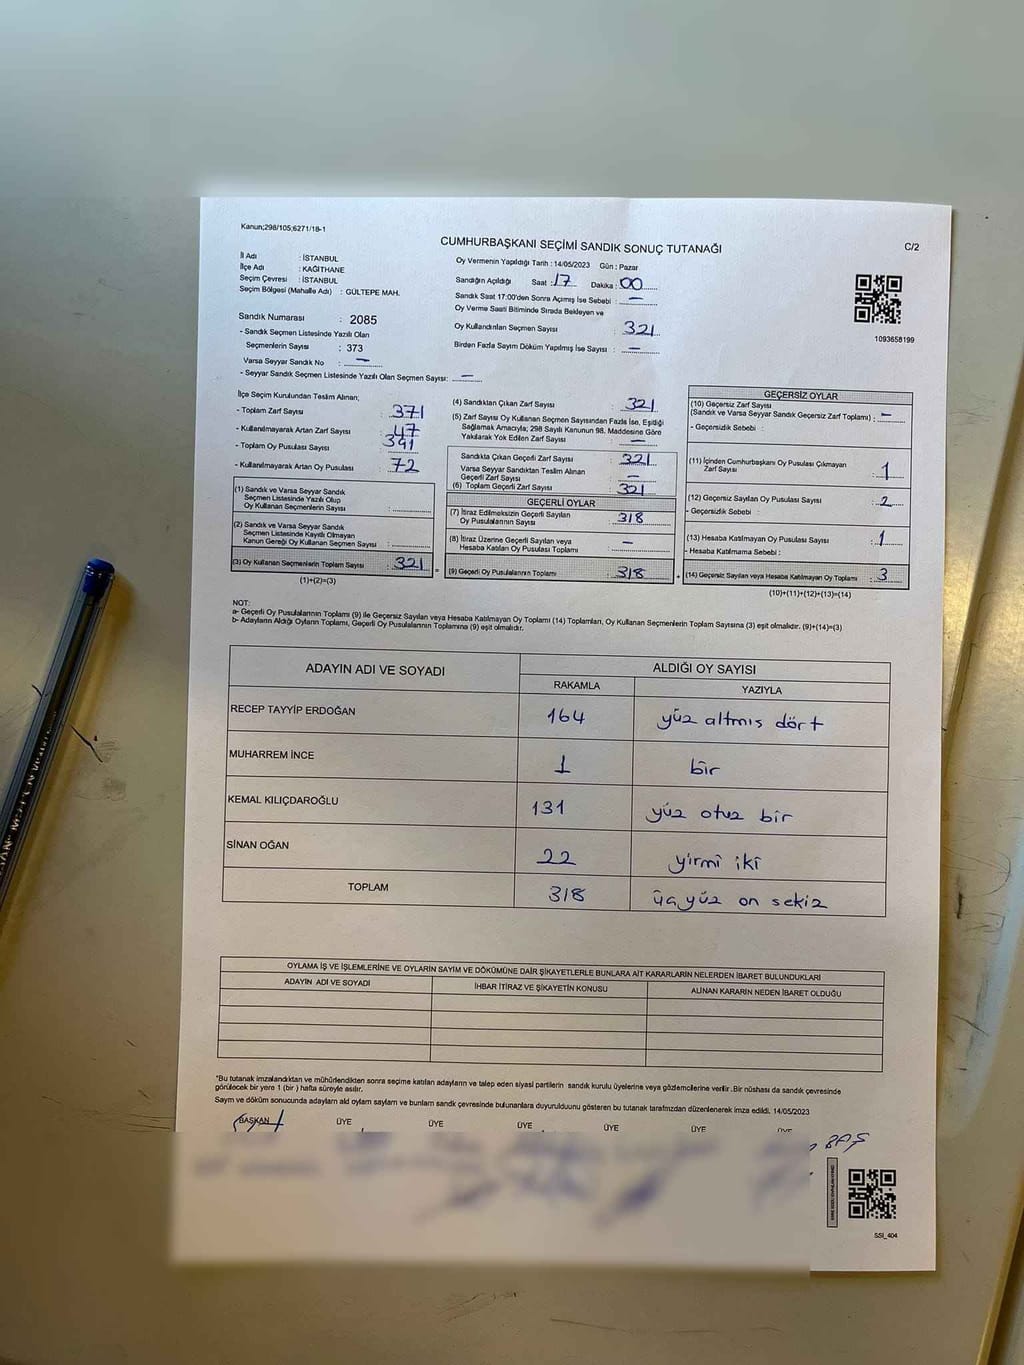 Kanun;298/105;6271/18-1
CUMHURBAŞKANI SEÇİMİ SANDIK SONUÇ TUTANAĞI
C/2
İl Adı : İSTANBUL
İlçe Adı : KAĞITHANE
Seçim Çevresi : İSTANBUL
Seçim Bölgesi (Mahalle Adı) : GÜLTEPE MAH.
Sandık Numarası : 2085
- Sandık Seçmen Listesinde Yazılı Olan
Seçmenlerin Sayısı : 373
Varsa Seyyar Sandık No : —
- Seyyar Sandık Seçmen Listesinde Yazılı Olan Seçmen Sayısı: —
Oy Vermenin Yapıldığı Tarih : 14/05/2023 Gün : Pazar
Sandığın Açıldığı Saat : 17 Dakika : 00
Sandık Saat 17:00'den Sonra Açımış İse Sebebi : —
Oy Verme Saati Bitiminde Sırada Bekleyen ve
Oy Kullandırılan Seçmen Sayısı : 321
Birden Fazla Sayım Döküm Yapılmış İse Sayısı : —
1093658199
İlçe Seçim Kurulundan Teslim Alınan;
- Toplam Zarf Sayısı : 371
- Kullanılmayarak Artan Zarf Sayısı : 47
- Toplam Oy Pusulası Sayısı : 391
- Kullanılmayarak Artan Oy Pusulası : 72
(1) Sandık ve Varsa Seyyar Sandık
Seçmen Listesinde Yazılı Olup
Oy Kullanan Seçmenlerin Sayısı :
(2) Sandık ve Varsa Seyyar Sandık
Seçmen Listesinde Kayıtlı Olmayan
Kanun Gereği Oy Kullanan Seçmen Sayısı :
(3) Oy Kullanan Seçmenlerin Toplam Sayısı : 321
(1)+(2)=(3)
(4) Sandıktan Çıkan Zarf Sayısı : 321
(5) Zarf Sayısı Oy Kullanan Seçmen Sayısından Fazla İse, Eşitliği
Sağlamak Amacıyla; 298 Sayılı Kanunun 98. Maddesine Göre
Yakılarak Yok Edilen Zarf Sayısı : —
Sandıkta Çıkan Geçerli Zarf Sayısı : 321
Varsa Seyyar Sandıktan Teslim Alınan
Geçerli Zarf Sayısı : —
(6) Toplam Geçerli Zarf Sayısı : 321
GEÇERLİ OYLAR
(7) İtiraz Edilmeksizin Geçerli Sayılan
Oy Pusulalarının Sayısı : 318
(8) İtiraz Üzerine Geçerli Sayılan veya
Hesaba Katılan Oy Pusulası Toplamı : —
(9) Geçerli Oy Pusulalarının Toplamı : 318
GEÇERSİZ OYLAR
(10) Geçersiz Zarf Sayısı
(Sandık ve Varsa Seyyar Sandık Geçersiz Zarf Toplamı) : —
- Geçersizlik Sebebi :
(11) İçinden Cumhurbaşkanı Oy Pusulası Çıkmayan
Zarf Sayısı : 1
(12) Geçersiz Sayılan Oy Pusulası Sayısı : 2
- Geçersizlik Sebebi :
(13) Hesaba Katılmayan Oy Pusulası Sayısı : 1
- Hesaba Katılmama Sebebi :
(14) Geçersiz Sayılan veya Hesaba Katılmayan Oy Toplamı : 3
(10)+(11)+(12)+(13)=(14)
NOT:
a- Geçerli Oy Pusulalarının Toplamı (9) ile Geçersiz Sayılan veya Hesaba Katılmayan Oy Toplamı (14) Toplamları, Oy Kullanan Seçmenlerin Toplam Sayısına (3) eşit olmalıdır. (9)+(14)=(3)
b- Adayların Aldığı Oyların Toplamı, Geçerli Oy Pusulalarının Toplamına (9) eşit olmalıdır.
ADAYIN ADI VE SOYADI ALDIĞI OY SAYISI
RAKAMLA YAZIYLA
RECEP TAYYİP ERDOĞAN 164 yüz altmış dört
MUHARREM İNCE 1 bir
KEMAL KILIÇDAROĞLU 131 yüz otuz bir
SİNAN OĞAN 22 yirmi iki
TOPLAM 318 üçyüz on sekiz
OYLAMA İŞ VE İŞLEMLERİNE VE OYLARIN SAYIM VE DÖKÜMÜNE DAİR ŞİKAYETLERLE BUNLARA AİT KARARLARIN NELERDEN İBARET BULUNDUKLARI
ADAYIN ADI VE SOYADI İHBAR İTİRAZ VE ŞİKAYETİN KONUSU ALINAN KARARIN NEDEN İBARET OLDUĞU
*Bu tutanak imzalandıktan ve mühürlendikten sonra seçime katılan adayların ve talep eden siyasi partilerin sandık kurulu üyelerine veya gözlemcilerine verilir. Bir nüshası da sandık çevresinde
görülecek bir yere 1 (bir ) hafta süreyle asılır.
Sayım ve döküm sonucunda adayların ald oyların sayların ve bunların sandk çevresinde bulunanlara duyurulduunu gösteren bu tutanak tarafmzdan düzenlenerek imza edildi. 14/05/2023
BAŞKAN ÜYE ÜYE ÜYE ÜYE ÜYE ÜYE
SSI_404